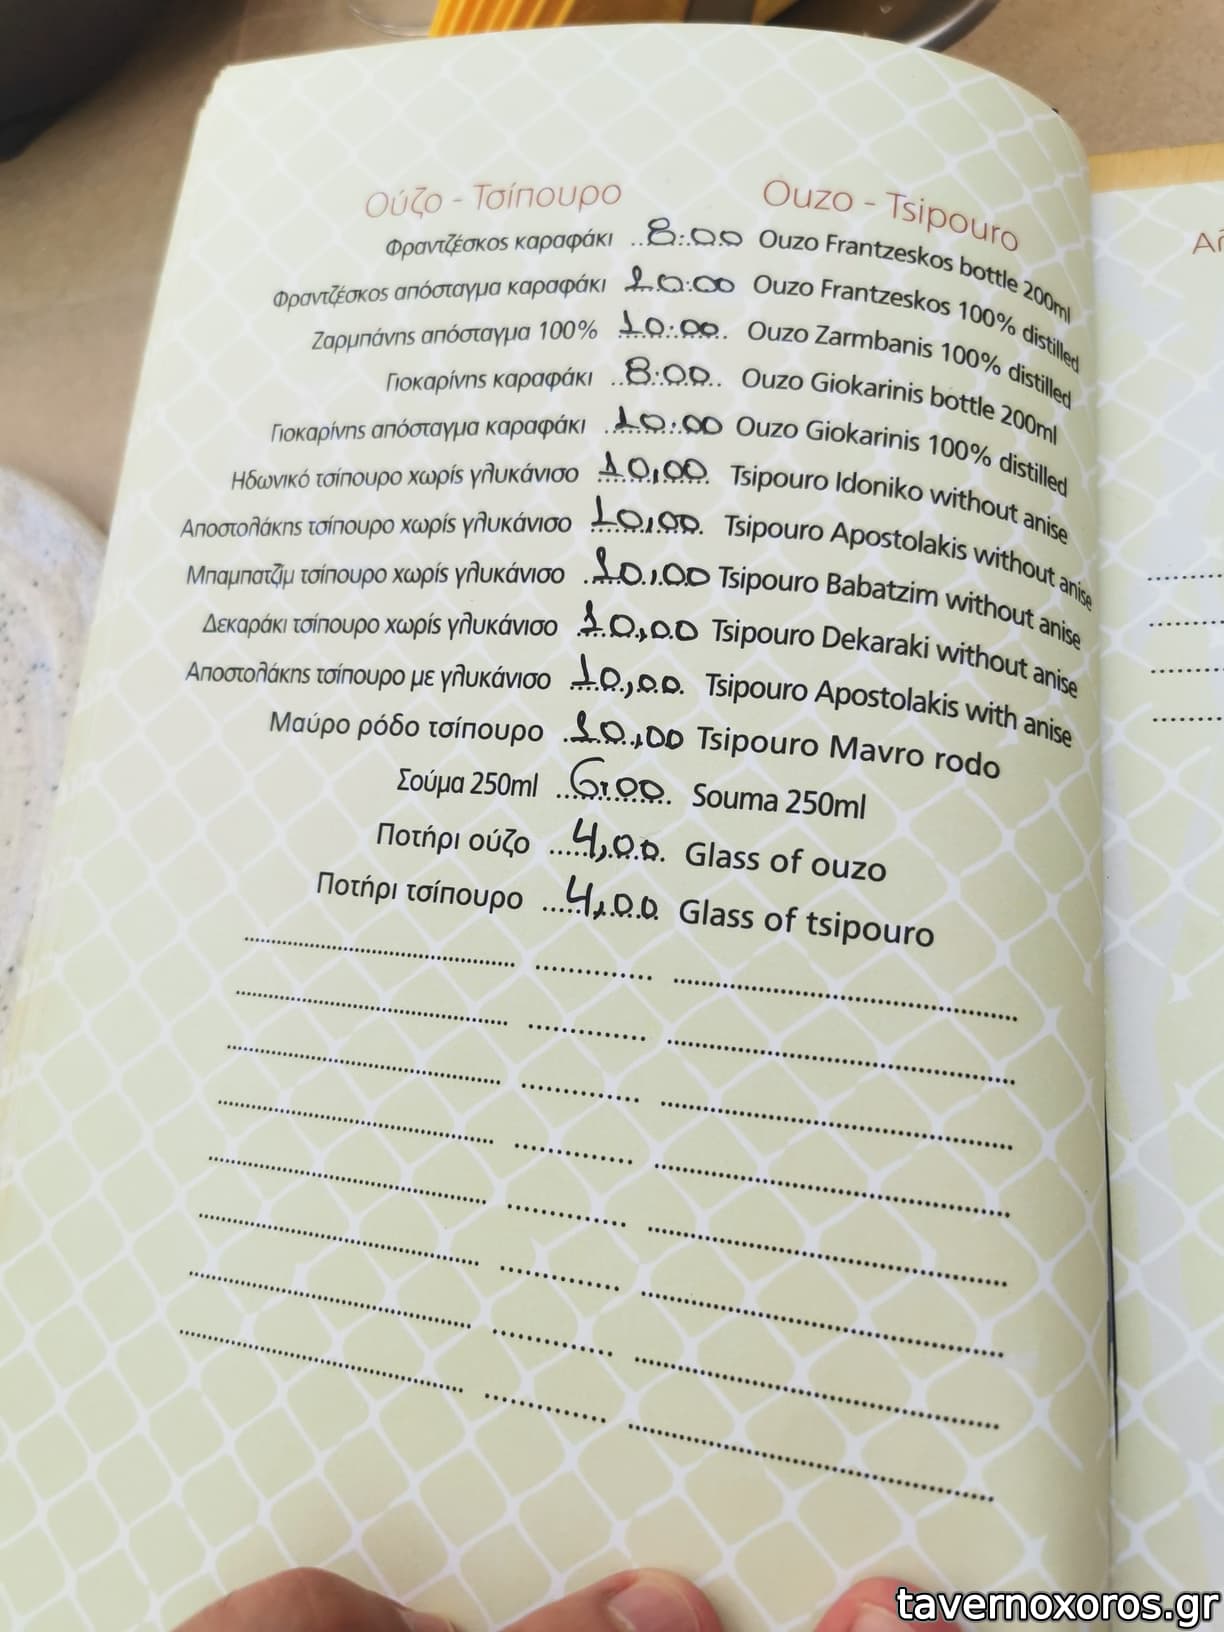 Ούζο - Τσίπουρο Ouzo - Tsipouro
Φραντζέσκος καραφάκι ..8:00 Ouzo Frantzeskos bottle 200ml
Φραντζέσκος απόσταγμα καραφάκι 10:00 Ouzo Frantzeskos 100% distilled
Ζαρμπάνης απόσταγμα 100% 10:00. Ouzo Zarmbanis 100% distilled
Γιοκαρίνης καραφάκι ..8:00.. Ouzo Giokarinis bottle 200ml
Γιοκαρίνης απόσταγμα καραφάκι .10:00 Ouzo Giokarinis 100% distilled
Ηδωνικό τσίπουρο χωρίς γλυκάνισο 10,00. Tsipouro Idoniko without anise
Αποστολάκης τσίπουρο χωρίς γλυκάνισο 10,00. Tsipouro Apostolakis without anise
Μπαμπατζίμ τσίπουρο χωρίς γλυκάνισο .10,00 Tsipouro Babatzim without anise
Δεκαράκι τσίπουρο χωρίς γλυκάνισο 10,00 Tsipouro Dekaraki without anise
Αποστολάκης τσίπουρο με γλυκάνισο 10,00. Tsipouro Apostolakis with anise
Μαύρο ρόδο τσίπουρο .10,00 Tsipouro Mavro rodo
Σούμα 250ml ..6,00. Souma 250ml
Ποτήρι ούζο ....4,00. Glass of ouzo
Ποτήρι τσίπουρο ....4,00 Glass of tsipouro
tavernoxoros.gr